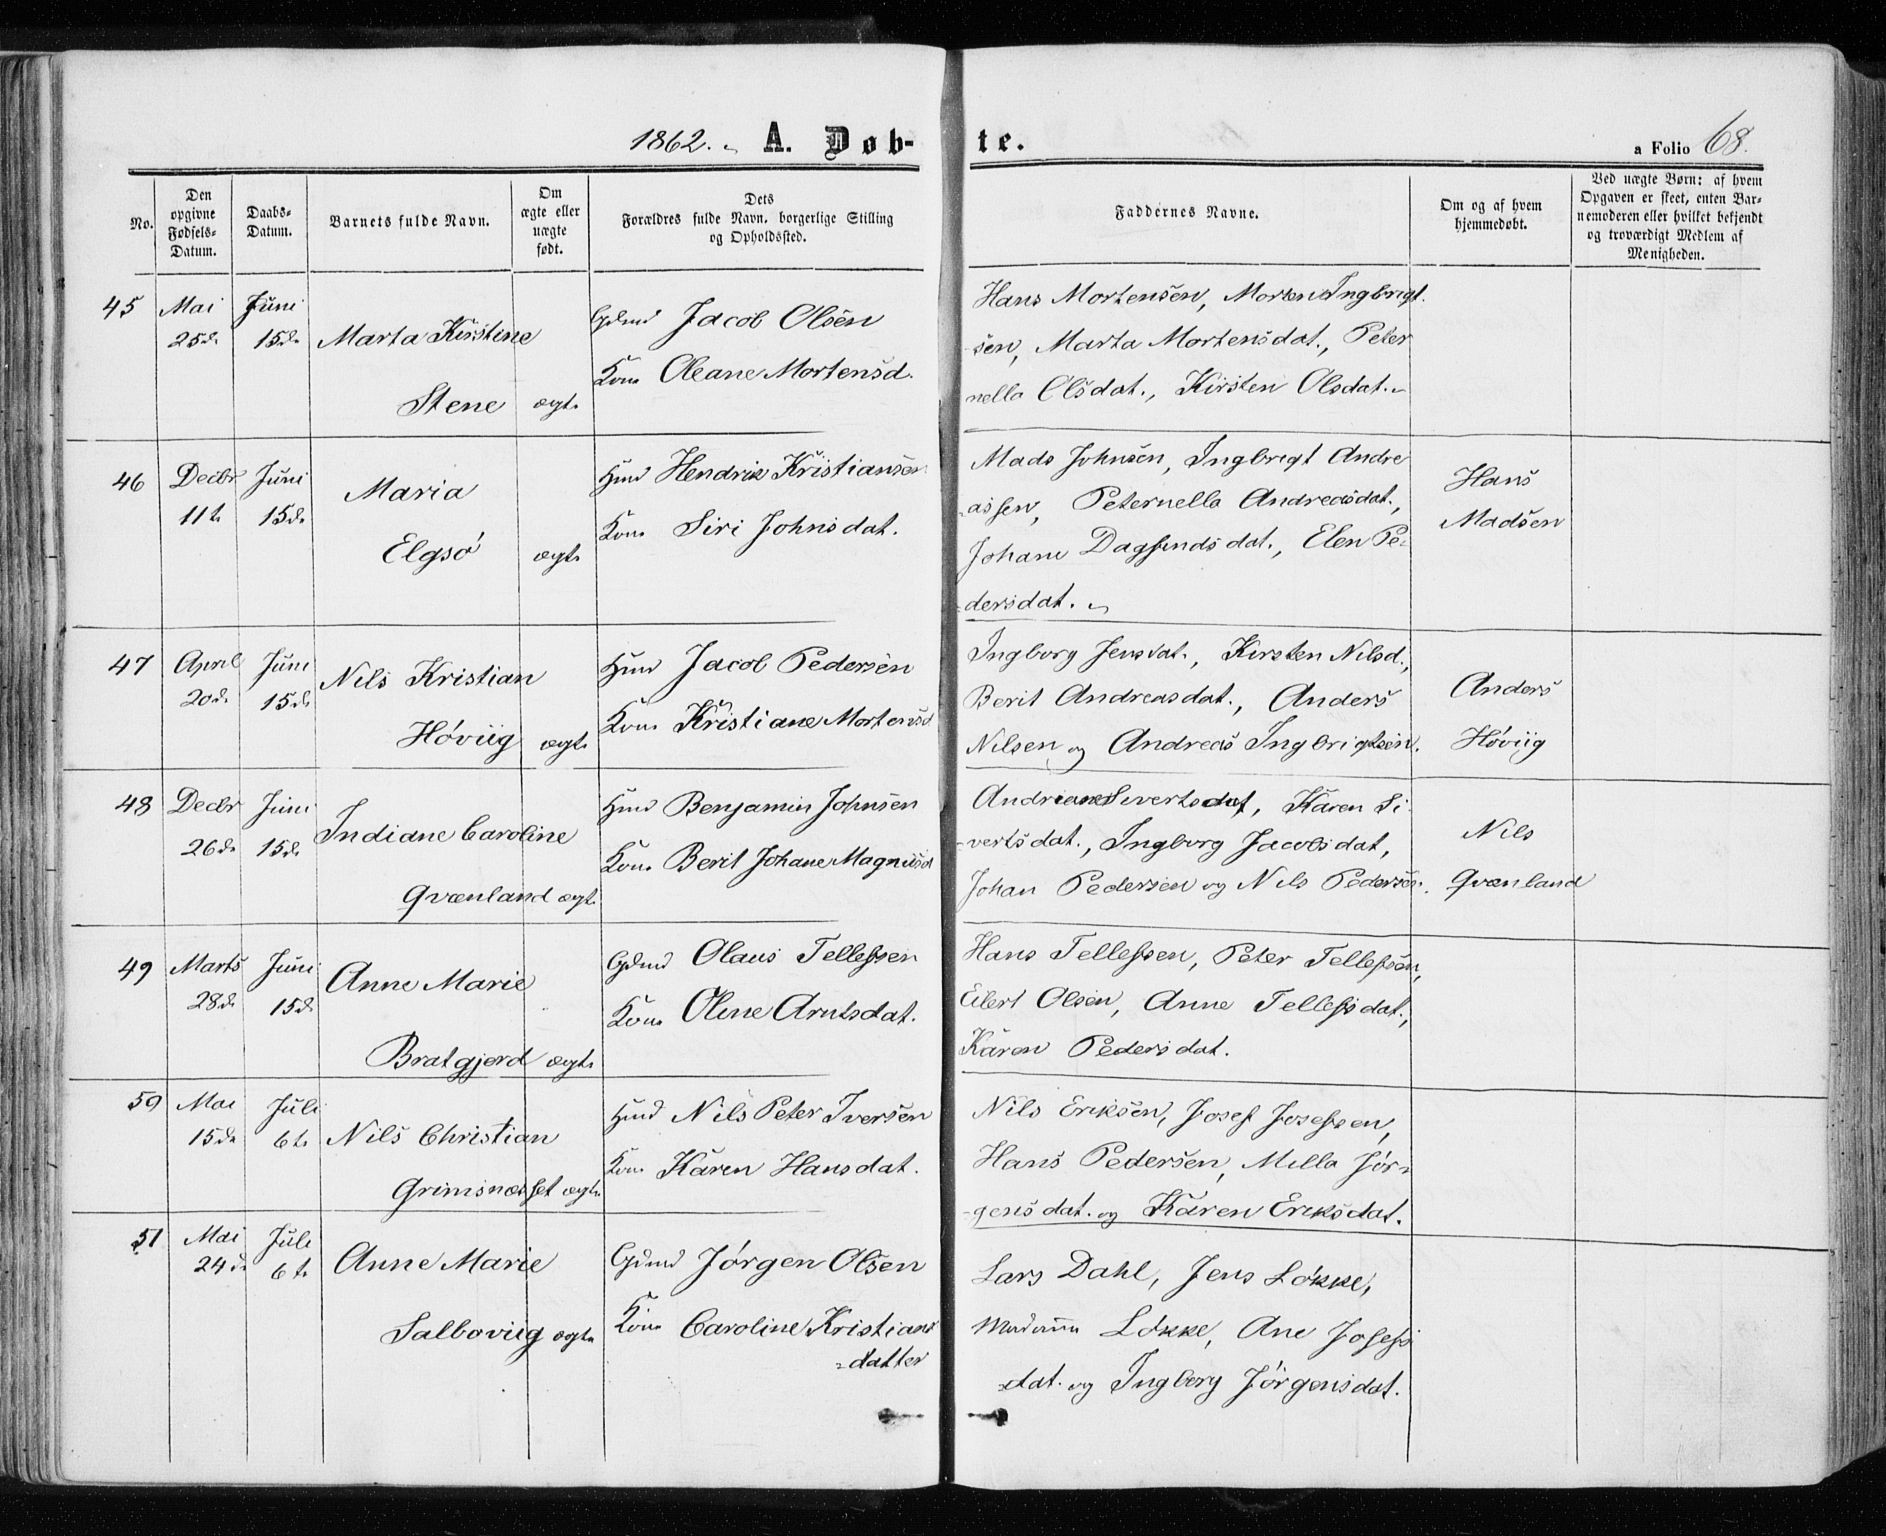 1862. A. Døb-
te.
a Folio 68.
No.
Den opgivne Fødsels-Datum.
Daabs-Datum.
Barnets fulde Navn.
Om ægte eller uægte født.
Dets Forældres fulde Navn, borgerlige Stilling og Opholdssted.
Faddernes Navne.
Om og af hvem hjemmedøbt.
Ved uægte Børn: af hvem Opgaven er skeet, enten Barnemoderen eller hvilket bekjendt og troværdigt Medlem af Menigheden.
45 Mai 25de Juni 15de
Marta Kirstine
Stene ægte
Gdmd Jacob Olsen
Kone Oleane Mortensd.
Hans Mortensen, Morten Ingbrigt-
sen, Marta Mortensdat., Peter
nella Olsdat., Kirsten Olsdat.
46 Decbr 11te Juni 15de
Maria
Elgsö ægte
Hmd Hendrik Kristiansen
Kone Siri Johnsdat.
Mads Johnsen, Ingbrigt Andre
assen, Peternella Andreasdat.,
Johane Dagfindsdat., Elen Pe-
dersdat.
Hans
Madsen
47 April 20de Juni 15de
Nils Kristian
Høviig ægte
Hmd Jacob Pedersen
Kone Kristiane Mortensd
Ingborg Jensdat., Kirsten Nilsd.,
Berit Andreasdat., Anders
Nilsen og Andreas Ingbrigtsen.
Anders
Høviig
48 Decbr 26de Juni 15de
Indiane Caroline
Qvænland ægte
Hmd Benjamin Johnsen
Kone Berit Johane Magnusd
Andriane Sivertsdat, Karen Si-
vertsdat., Ingborg Jacobsdat,
Johan Pedersen og Nils Pedersen.
Nils
Qvænland
49 Marts 28de Juni 15de
Anne Marie
Bratgjerd ægte
Gdmd Olaus Tellefsen
Kone Oline Arntsdat.
Hans Tellefsen, Peter Tellefsen,
Eilert Olsen, Anne Tellefsdat.,
Karen Pedersdat.
50 Mai 15de Juli 6te
Nils Christian
Grimsnæsset ægte
Hmd Nils Peter Iversen
Kone Karen Hansdat.
Nils Eriksen, Josef Josefsen,
Hans Pedersen, Milla Jør-
gensdat. og Karen Eriksdat.
51 Mai 24de Juli 6te
Anne Marie
Salboviig ægte
Gdmd Jørgen Olsen
Kone Caroline Kristians
datter
Lars Dahl, Jens Løkke,
Madame Løkke, Ane Josefs
dat. og Ingborg Jørgensdat.